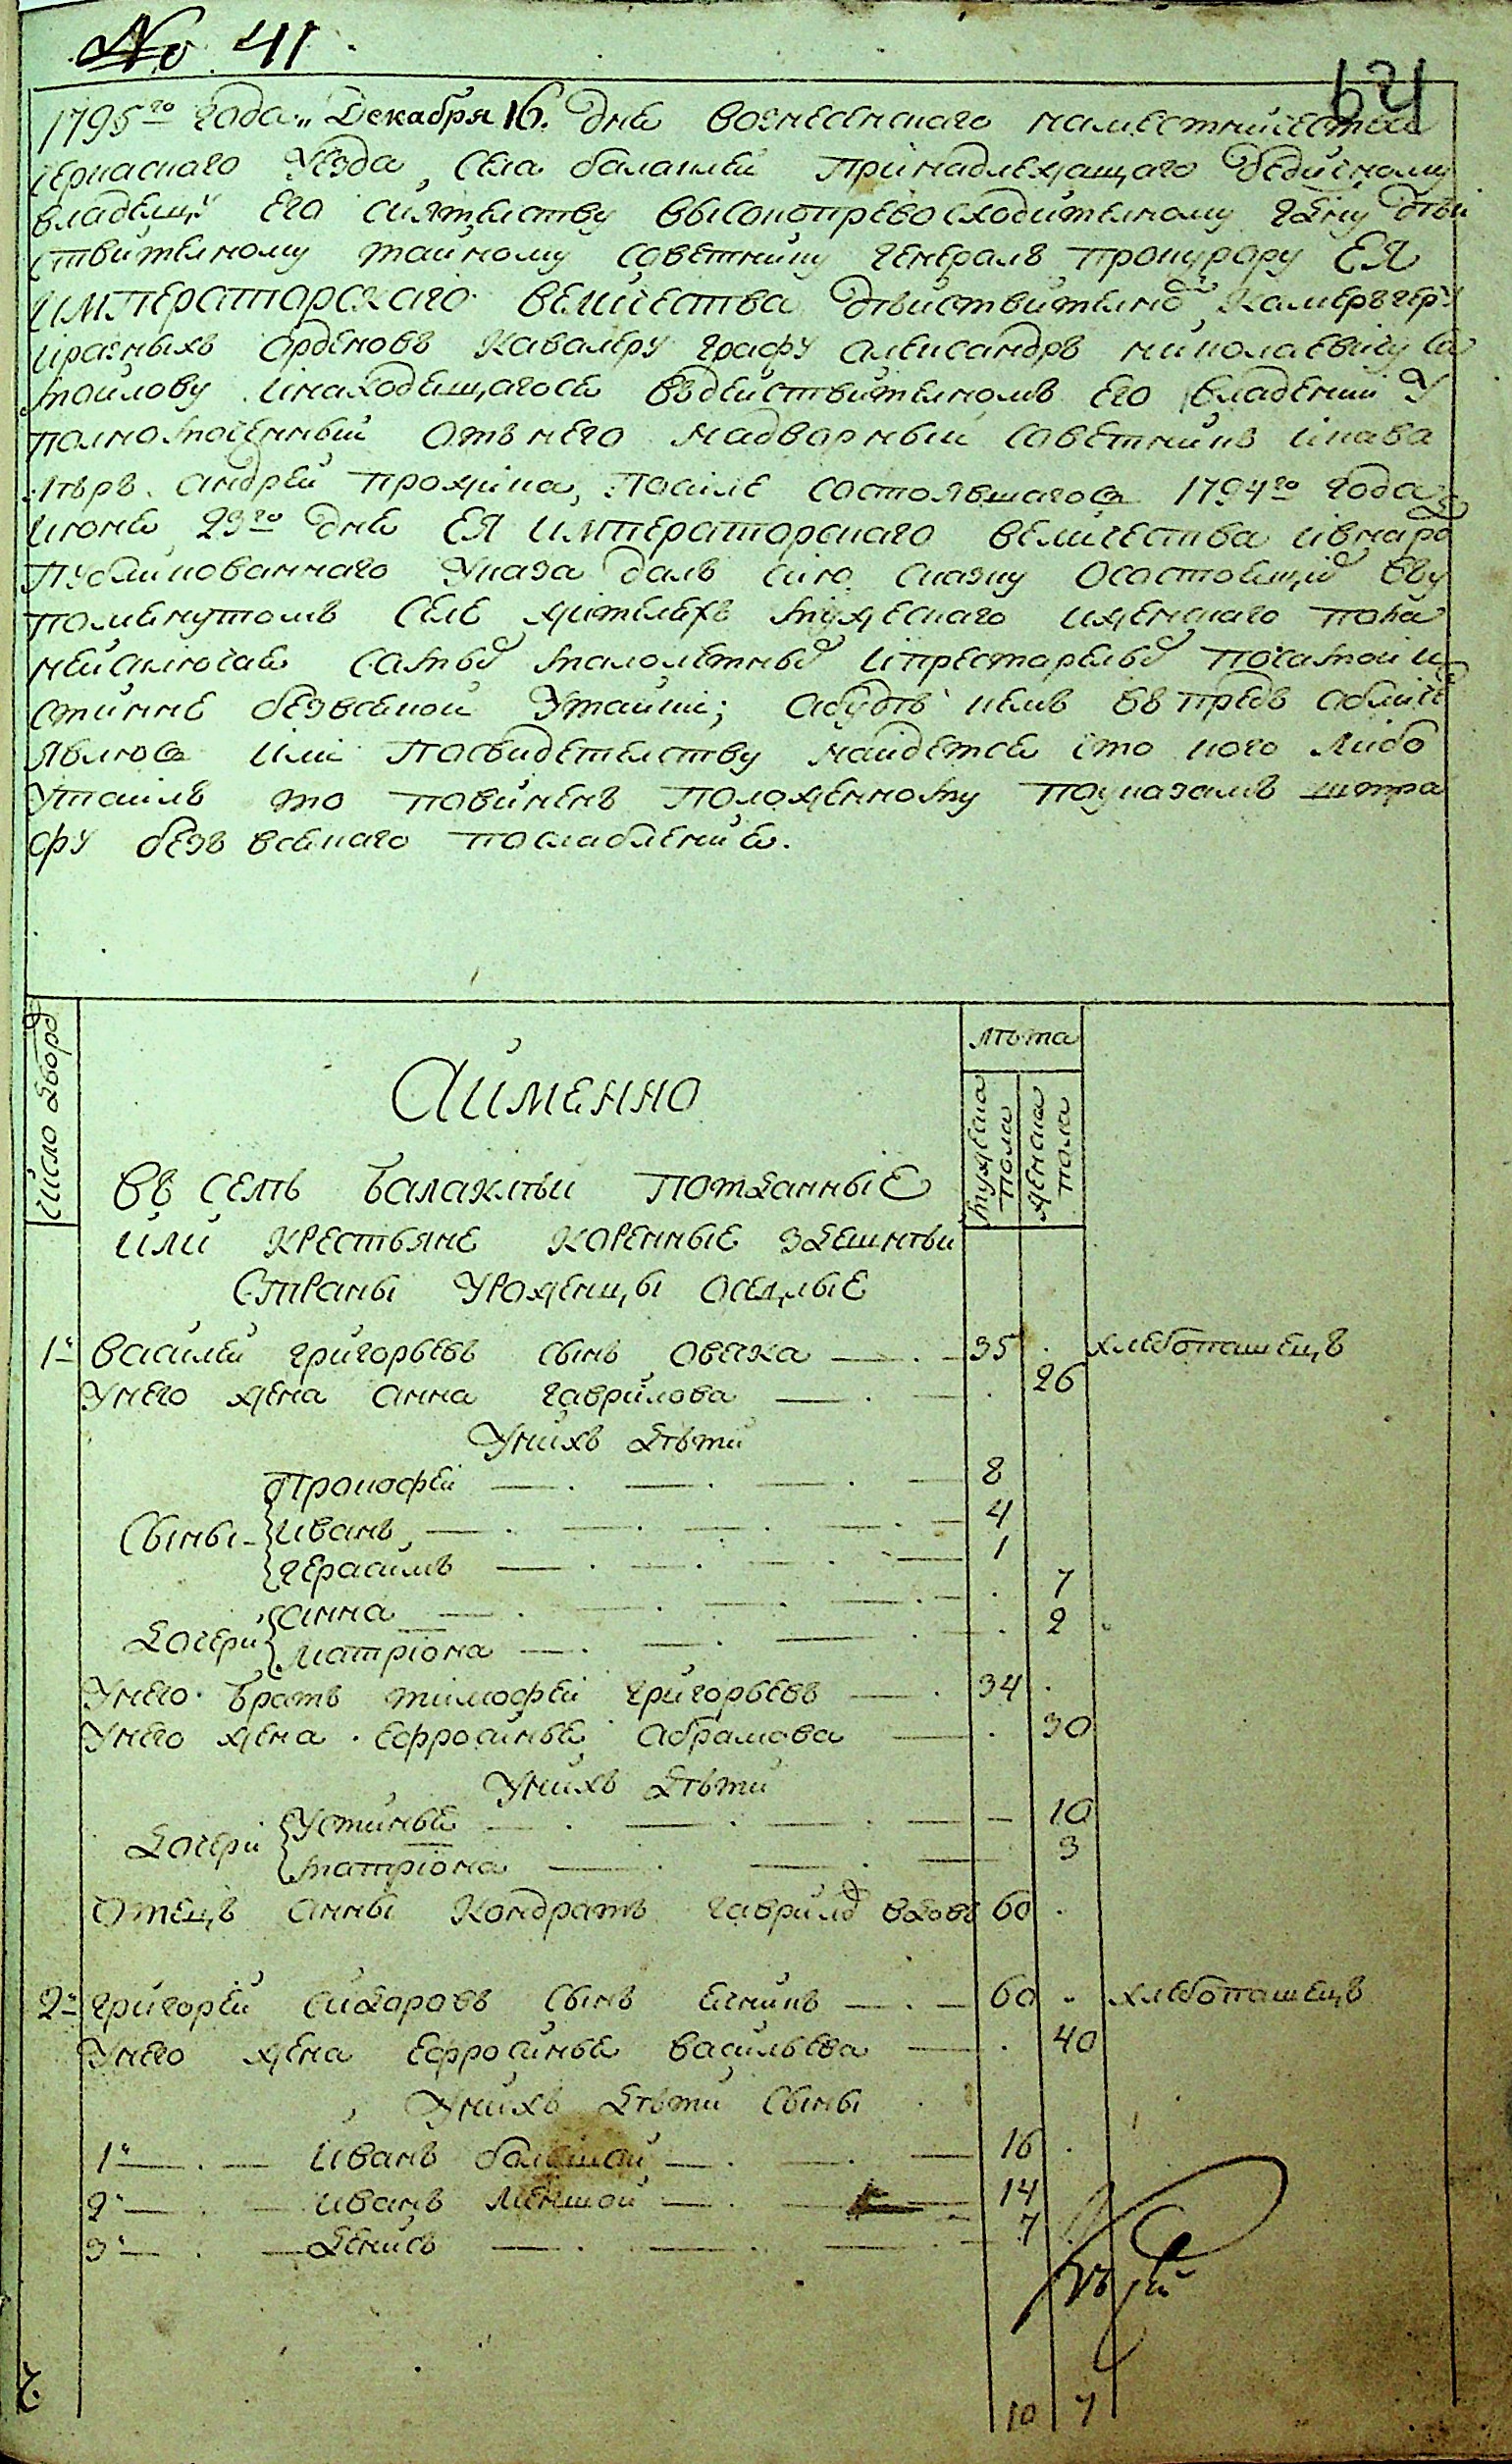 № 41.
641
1795го года „ Декабря 16. дня вознесенскаго наместничества
черкаскаго уезда села балаклеи принадлежащаго дедичному
владелцу его сиятелству высокопревосходителному гдну дѣй
ствителному тайному советнику генералъ прокурору ЕЯ
ИМПЕРАТОРСКАГО величества дѣйствително камергеру
ираzныхъ орденовъ кавалеру графу александръ николаевичу са
мойлову инаходящагося въдействителномъ его владении у
полномоченный отъ него надворный советникъ икава
лѣръ андрей прожика, после состоявшагося 1794го года
июня 23го дня ЕЯ ИМПЕРАТОРСКАГО величества ивнаро
публикованнаго указа далъ сию скаску осостоящихъ въу
помянутомъ селе жителяхъ мужескаго иженскаго пола
неисключая самыхъ малолетныхъ ипрестарелыхъ посамой и
стинне безвсякой утайки; абудѣ кемъ въ предъ обличе
явлюся или посвидетелству найдется что кого либо
утаилъ то повиненъ положенному поуказамъ штра
фу безъ всякаго послабления.
число дворо
Аименно
лѣта
мужеска пола
женска пола
въ селѣ балаклѣи потданные
или крестьяне коренные здешнѣи
страны уроженцы оседлые
1й василей григорьевъ сынъ овечка 35 . хлебопашецъ
унего жена анна гаврилова . 26
унихъ дѣти
Сыны прокофей 8
иванъ 4
герасимъ 1
дочери анна . 7
матриона . 2
унего братъ тимофей григорьевъ 34 .
унего жена ефросинья абрамова . 30
унихъ дѣти
дочери устинья — 10
матриона 3
отецъ анны кондратъ гаврило вдовъ 60 .
2й григорей сидоровъ сынъ 60 . хлебопашецъ
унего жена ефросинья васильева . 40
унихъ дѣти сыны
1й иванъ болшой 16 .
2й иванъ меншой 14
3й денисъ 7
10 7